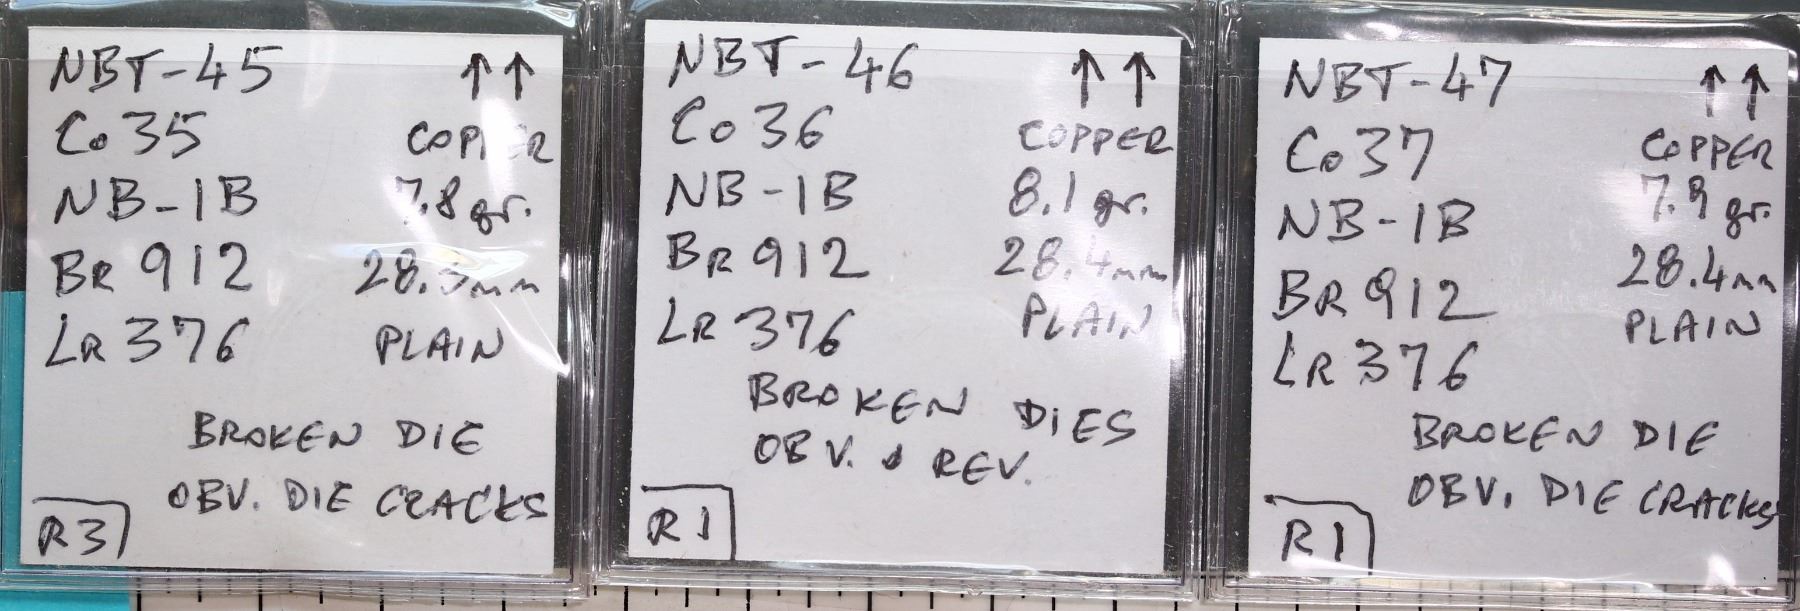 NBT-45 ↑↑
Co 35 COPPER
NB-1B 7.8 gr.
BR 912 28.3mm
LR 376 PLAIN
BROKEN DIE
OBV. DIE CRACKS
R3
NBT-46 ↑↑
Co 36 COPPER
NB-1B 8.1 gr.
BR 912 28.4mm
LR 376 PLAIN
BROKEN DIES
OBV. & REV.
R1
NBT-47 ↑↑
Co 37 COPPER
NB-1B 7.9 gr.
BR 912 28.4mm
LR 376 PLAIN
BROKEN DIE
OBV. DIE CRACKS
R1